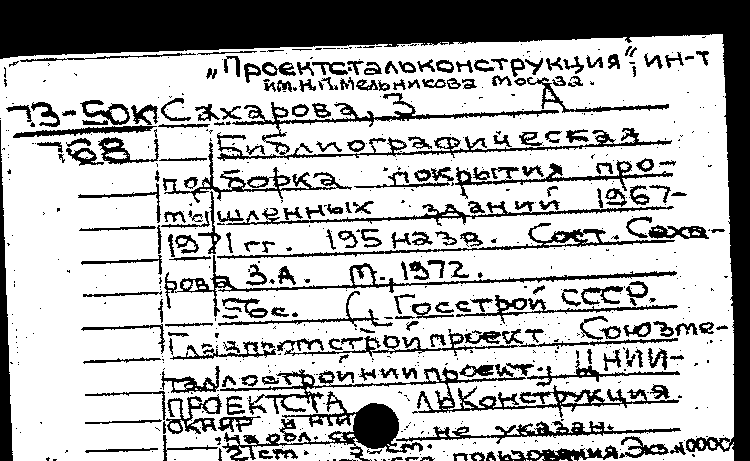 „Проектстальконструкция“, ин-т
им. Н.П. Мельникова Москва.
73-50к Сахарова, З А
768 Библиографическая
подборка покрытия про-
мышленных зданий 1967-
1971 гг. 195 назв. Сост. Саха-
рова З.А. М., 1972.
56 с. (Госстрой СССР.
Главпромстройпроект. Союзме-
таллостройниипроект., ЦНИИ-
ПРОЕКТСТА ЛЬКонструкция
на обл. не указан.
21 ст. пользования. Экз. N 0000